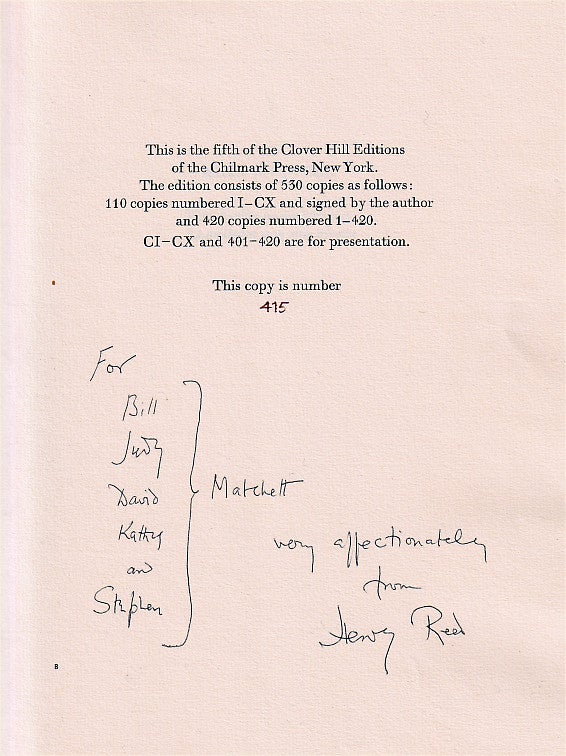 This is the fifth of the Clover Hill Editions
of the Chilmark Press, New York.
The edition consists of 530 copies as follows:
110 copies numbered I–CX and signed by the author
and 420 copies numbered 1–420.
CI–CX and 401–420 are for presentation.
This copy is number
415
For
Bill
Judy
David
Kathy
and
Stephen
Matchett
very affectionately
from
Henry Reed
B